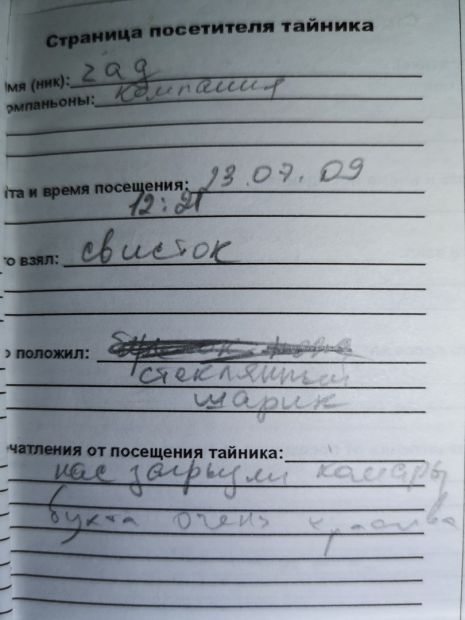 Страница посетителя тайника
мя (ник): гад
омпаньоны: компания
та и время посещения: 23.07.09
12:21
о взял: свисток
о положил:
стеклянный
шарик
чатления от посещения тайника:
нас загрызли комары
бухта очень красива